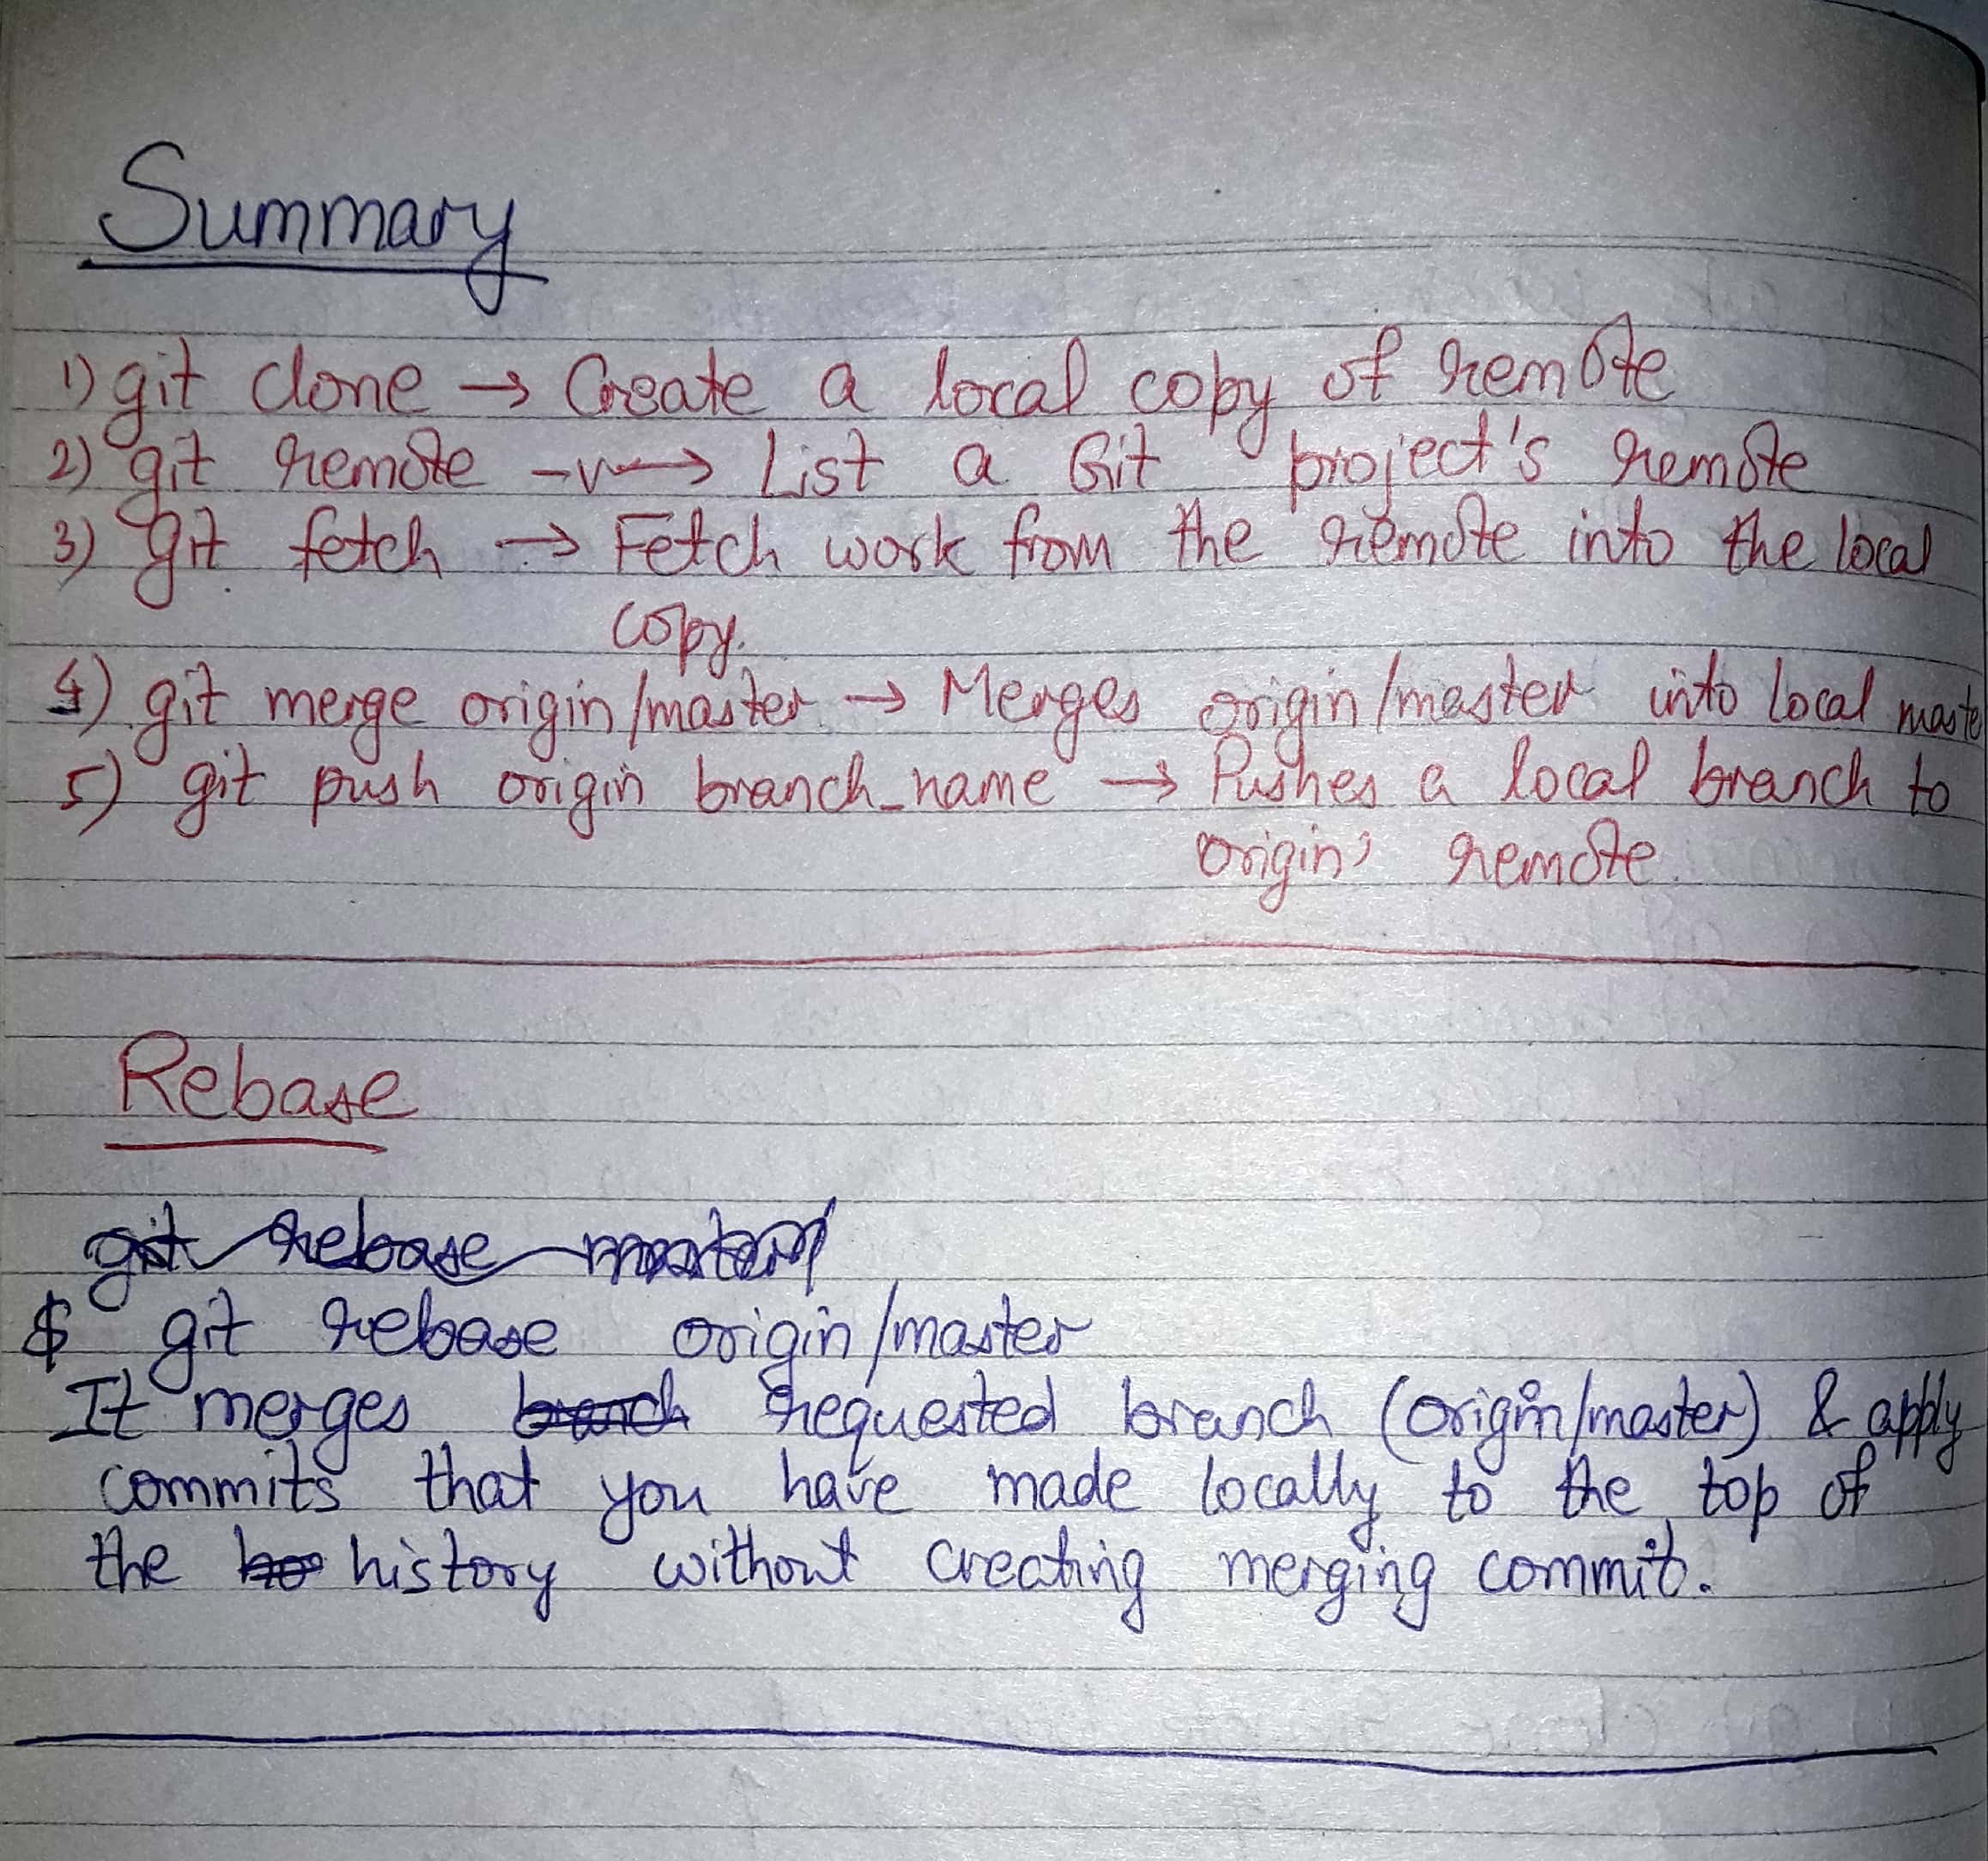 Summary
1) git clone → Create a local copy of remote
2) git remote -v → List a Git project's remote
3) git fetch → Fetch work from the remote into the local
copy.
4) git merge origin/master → Merges origin/master into local maste
5) git push origin branch_name → Pushes a local branch to
origin' remote.
Rebase
git rebase master
$ git rebase origin/master
It merges branch requested branch (origin/master) & apply
commits that you have made locally to the top of
the ho history without creating merging commit.